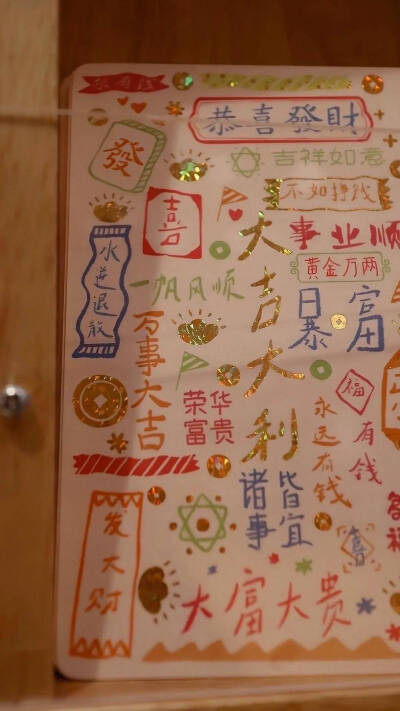 恭喜發財
發
吉祥如意
不如挣钱
喜
大吉大利
事业顺
黄金万两
水逆退散
一帆风顺
日暴
富
万事大吉
荣华
富贵
福
永远有钱
有钱
诸事
皆宜
喜
发大财
大富大贵